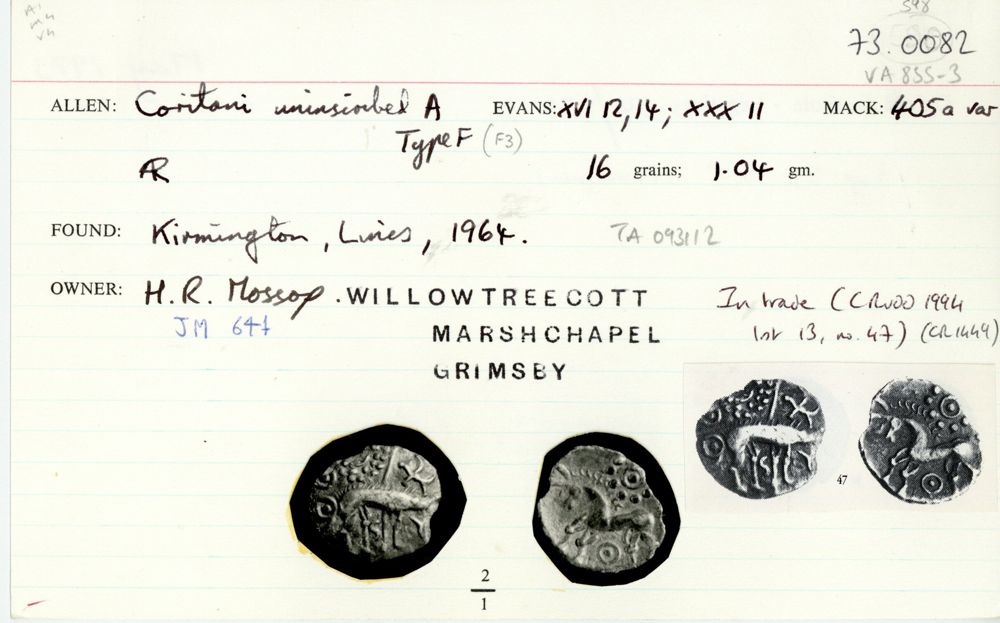 73.0082
VA 855-3
ALLEN: Coritani uninscribed A EVANS: XVI 12, 14; XXX 11 MACK: 405a var
Type F (F3)
AR 16 grains; 1.04 gm.
FOUND: Kirmington, Lincs, 1964. TA 093112
OWNER: H. R. Mossop. WILLOWTREE COTT In trade (CRUDD 1994
JM 641 MARSHCHAPEL list 13, no. 47) (CR 1449)
GRIMSBY
47
2
1